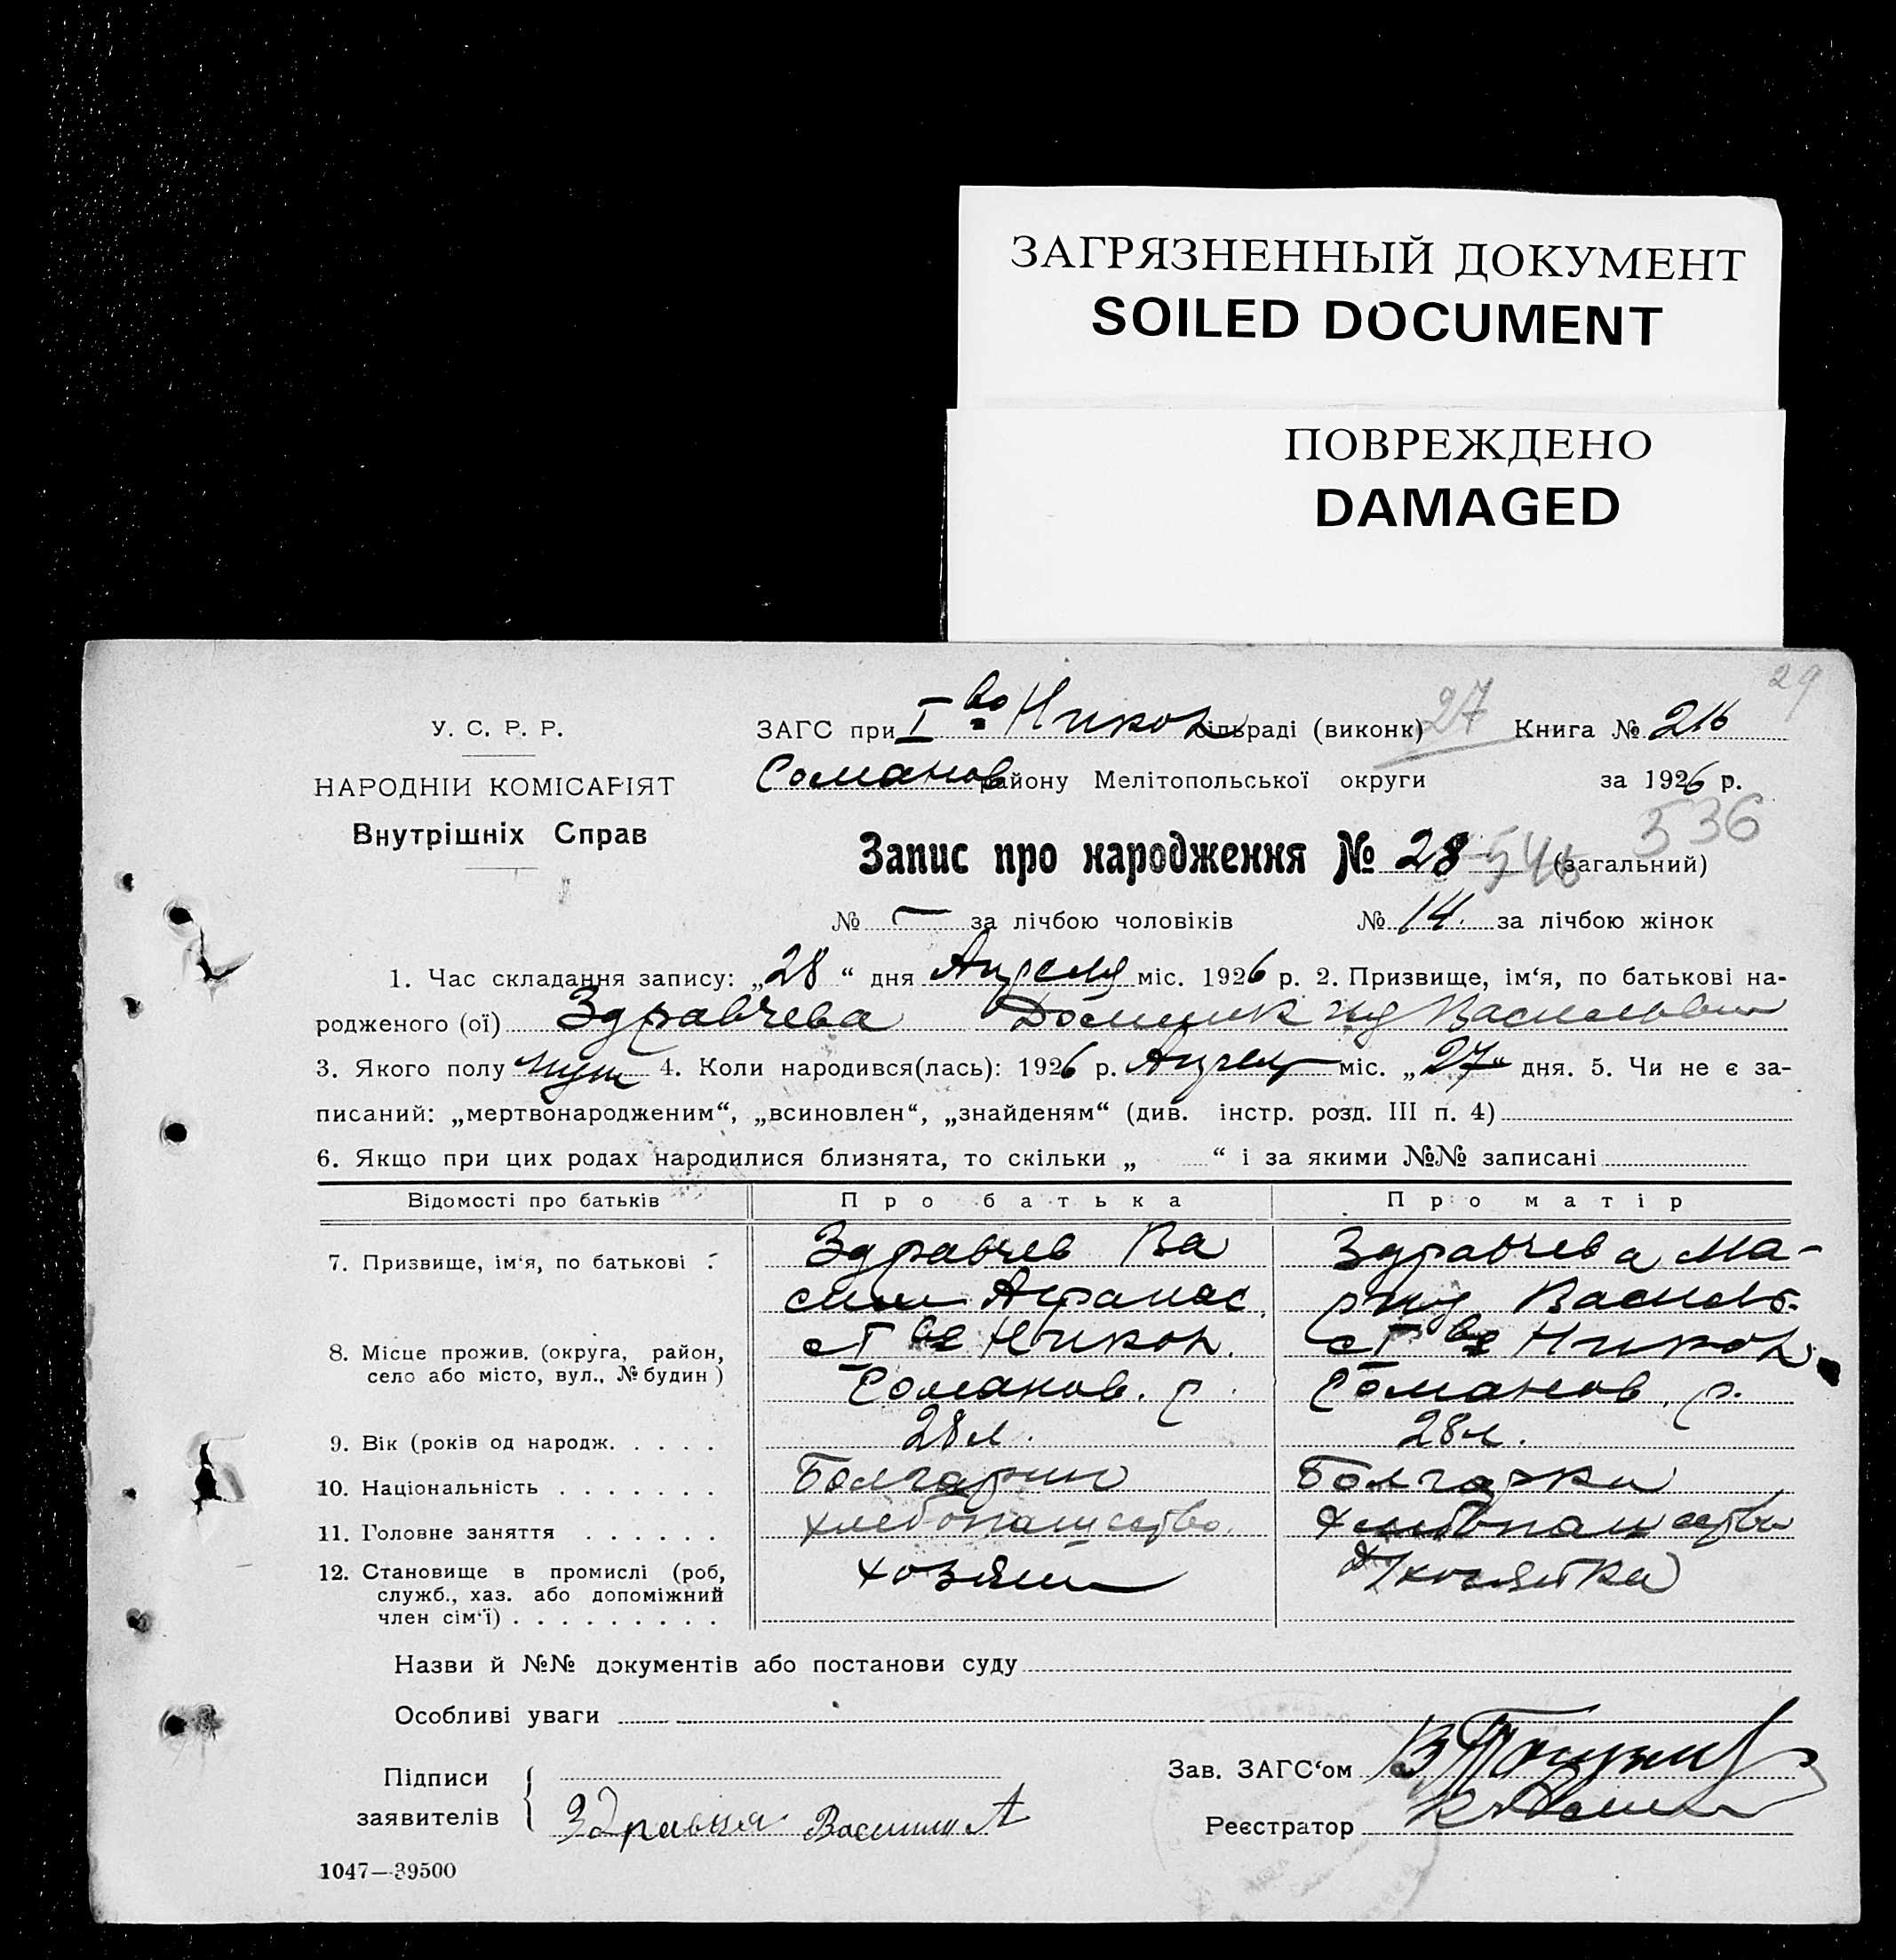 ЗАГРЯЗНЕННЫЙ ДОКУМЕНТ
SOILED DOCUMENT
ПОВРЕЖДЕНО
DAMAGED
29
У. С. Р. Р.
НАРОДНІЙ КОМІСАРІЯТ
Внутрішніх Справ
ЗАГС при І во Никол сільраді (виконк) 27 Книга № 216
району Мелітопольської округи за 1926 р.
536
Запис про народження № 28 546 (загальний)
№ — за лічбою чоловіків № 14. за лічбою жінок
1. Час складання запису: „28“ дня Апреля міс. 1926 р. 2. Призвище, ім‘я, по батькові на-
родженого (ої) Здравчева
3. Якого полу 4. Коли народився(лась): 1926 р. міс. „27“ дня. 5. Чи не є за-
писаний: „мертвонародженим“, „всиновлен“, „знайденям“ (див. інстр. розд. III п. 4)
6. Якщо при цих родах народилися близнята, то скільки „ “ і за якими №№ записані
Відомості про батьків Про батька Про матір
7. Призвище, ім‘я, по батькові : Здравчев Ва Здравчева Ма-
силий Афанас. рия Василь.
8. Місце прожив. (округа, район, с І ва Никол. с І ва Никол.
село або місто, вул., № будин) р. р.
9. Вік (років од народж. . . . . 28 л. 28 л.
10. Національність . . . . . . . Болгарин Болгарка
11. Головне заняття . . . . . . хлебопашество. хлебопашество
12. Становище в промислі (роб, хозяин д/хозяйка
служб., хаз. або допоміжний
член сім‘ї) . . . . . . . . .
Назви й №№ документів або постанови суду
Особливі уваги
Підписи
заявителів Василий А
Зав. ЗАГС‘ом
Реєстратор
1047—39500